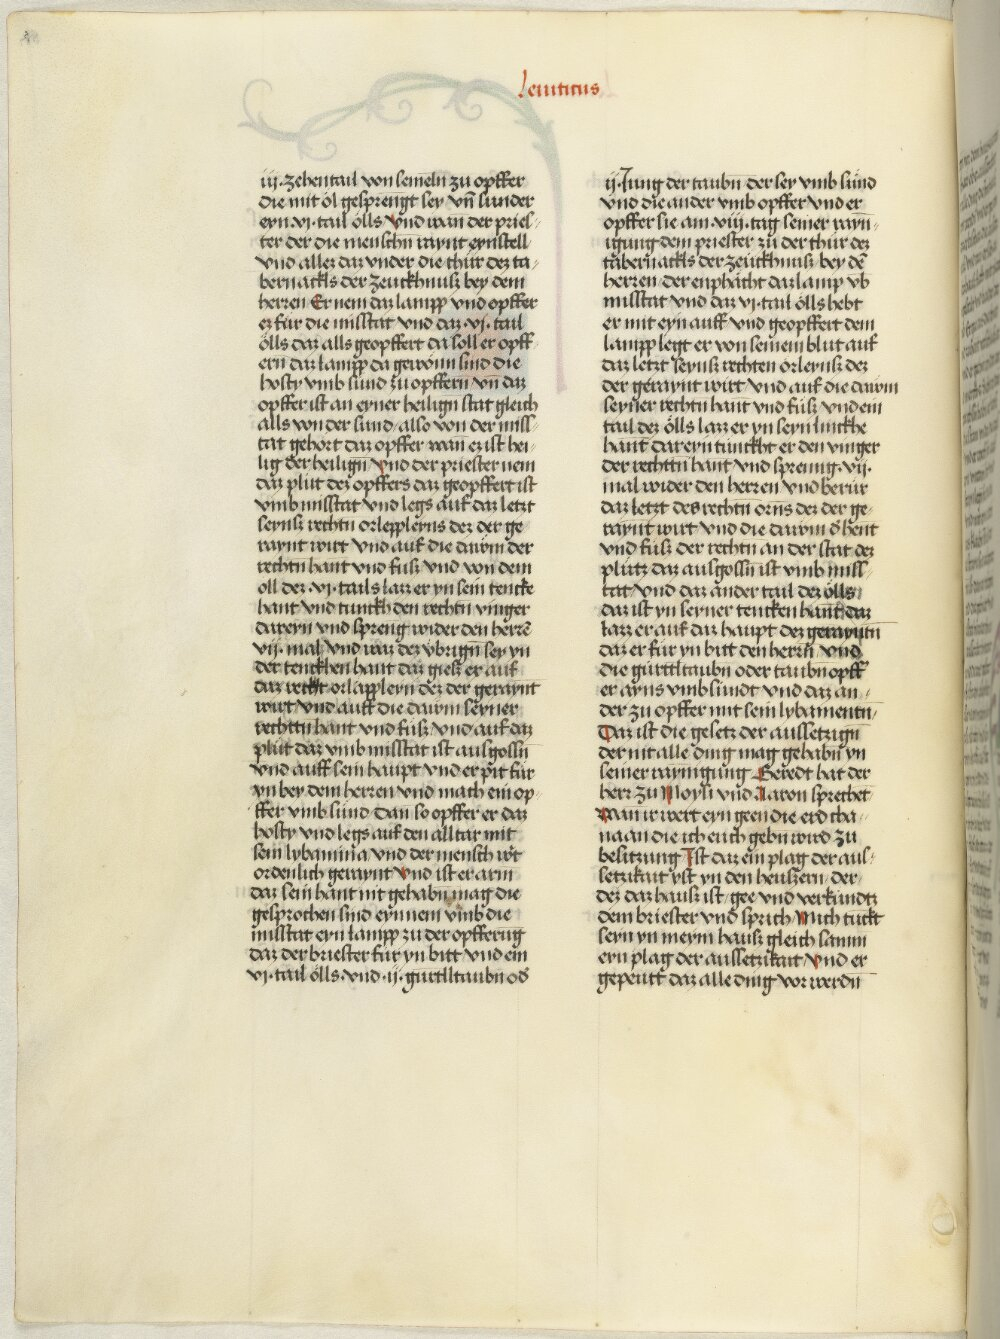 leuiticus
iij. zehentail von semeln zu opffer
die mit öl gesprengt sey vn̄ sunder
eyn .vj. tail ölls Vnd wan der pries-
ter der die menschn raynt eynstell
vnd aller daz vnder die thür dez ta-
bernackls der zeuckhnusz bey dem
herren Er nem daz lampp vnd opffer
ez für die misstat vnd daz .vj. tail
ölls daz alls geopffert da soll er opff
ern daz lampp da gewonn sind die
hosty vmb sund zu opffern vn̄ daz
opffer ist an eyner heilign stat gleich
alls von der sund also von der miss-
tat gehort daz opffer wan ez ist hei-
lig der heilign Vnd der priester nem
daz plut dez opffers daz geopffert ist
vmb misstat vnd legs auf daz letzt
seynsz rechtn orlepplenns dez der ge
raynt wirt vnd auf die dawm der
rechtn hant vnd fusz vnd von dem
oll dez .vj. tails lasz er yn sein tencke
hant vnd tunckh den rechtn vinger
dareyn vnd spreng wider den herrē
vij. mal vnd waz dez vbrign sey yn
der tenckhen hant daz giesz er auf
daz recht orläppleyn dez der geraynt
wirt vnd auff die dawm seyner
rechttn hant vnd füsz vnd auf daz
plut daz vmb misstat ist ausgossn
vnd auff sein haupt vnd er pit für
yn bey dem herren vnd mach ein op-
ffer vmb sünd dan so opffer er daz
hosty vnd legs auf den alltar mit
sein lybamina vnd der mensch wt
ordenlich geraynt Vnd ist er arm
daz sein hant nit gehabn mag die
gesprochen sind eyn nem vmb die
misstat eyn lampp zu der opfferug
daz der briester für yn bitt vnd ein
vj. tail ölls vnd .ij. gurtltaubn od
ij. Jung der taubn der sey vmb sünd
vnd die ander vmb opffer vnd er
opffer sie am .viij. tag seiner rayn-
igung dem priester zü der thür dez
tabernackls der zeückhnusz bey dē
herren der enphächt daz lamp vb
misstat vnd daz vj. tail ölls hebt
er mit eyn auff vnd geopffert dem
lampp legt er von seinem blut auf
daz letzt seynsz rechten orleynsz dez
der geraynt wirt vnd auf die dawm
seyner rechtn hant vnd füsz vnd ein
tail dez ölls lasz er yn seyn linckhe
hant dareyn tünckht er den vinger
der rechttn hant vnd spreinig .vij.
mal wider den herren vnd berür
daz letzt des rechtn orns dez der ge-
raynt wirt vnd die dawm d hent
vnd füsz der rechtn an der stat dez
plutz daz ausgossn ist vmb miss-
tat vnd daz ander tail dez ölls
daz ist yn seyner tencken hant daz
lasz er auf daz haupt dez geraynttn
daz er für yn bitt den herrn vnd
die gürttltaubn oder taubn opff
er ayns vmb sundt vnd daz an-
der zu opffer mit sein lybamentn
Daz ist die gesetz der aussetzign
der nit alle ding mag gehabn yn
seiner raynigung Geredt hat der
herr zu Moysi vnd Aaron sprechet
Wan ir wert eyn geen die erd cha-
naan die ich euch gebn wird zu
besitzung Ist daz ein plag der aus-
setzikait yst yn den heuszern der
dez daz hausz ist gee vnd verkündtz
dem briester vnd sprich Mich tückt
seyn yn meym hausz gleich samm
eyn plag der aussetzikait Vnd er
gepeutt daz alle ding vor werdn